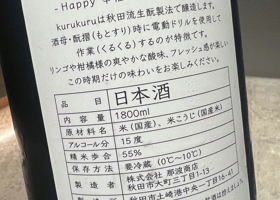 - Happy
kurukuruは秋田流生酛製法で醸造します。
酒母・酛摺(もとすり)時に電動ドリルを使用して
作業(くるくる)するのが特徴です。
リンゴや柑橘様の爽やかな酸味、フレッシュ感が楽しい
この時期だけの味わいをお楽しみください。
日本酒
内容量 1800ml
原材料名 米(国産)、米こうじ(国産米)
アルコール分 15度
精米歩合 55%
保存方法 要冷蔵(0℃〜10℃)
製造者 株式会社 那波商店
秋田市大町三丁目1-13
製造 秋田市土崎港中央一丁目16-41